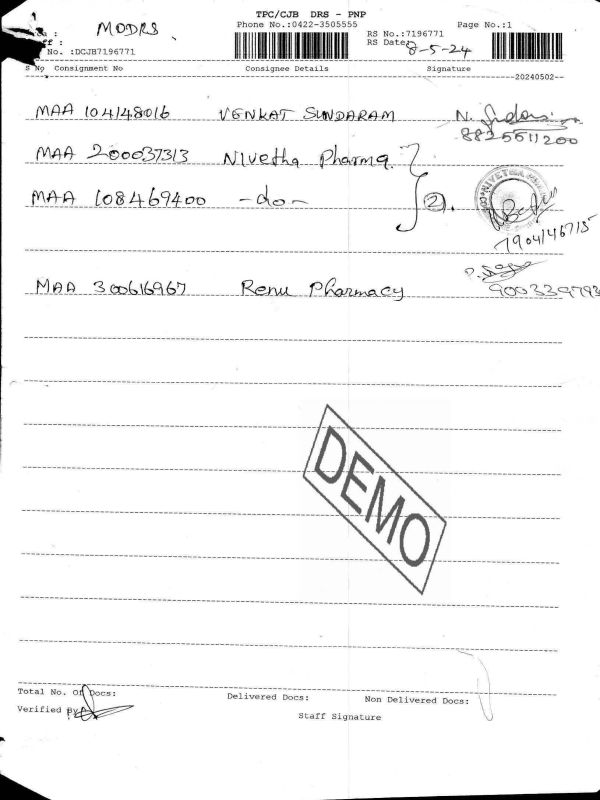 TPC/CJB DRS - PNP
Phone No.:0422-3505555 Page No.:1
MODRS
RS No.:7196771
RS Date: 8-5-24
No. :DCJB7196771
S No Consignment No Consignee Details Signature
20240502
MAA 104148016 VENKAT SUNDARAM N.
8825511200
MAA 200037313 Nivetha Pharma
MAA 108469400 -do- (2).
7904146715
MAA 300616967 Renu Pharmacy P.
900339793
DEMO
Total No. Of Docs: Delivered Docs: Non Delivered Docs:
Verified By
Staff Signature